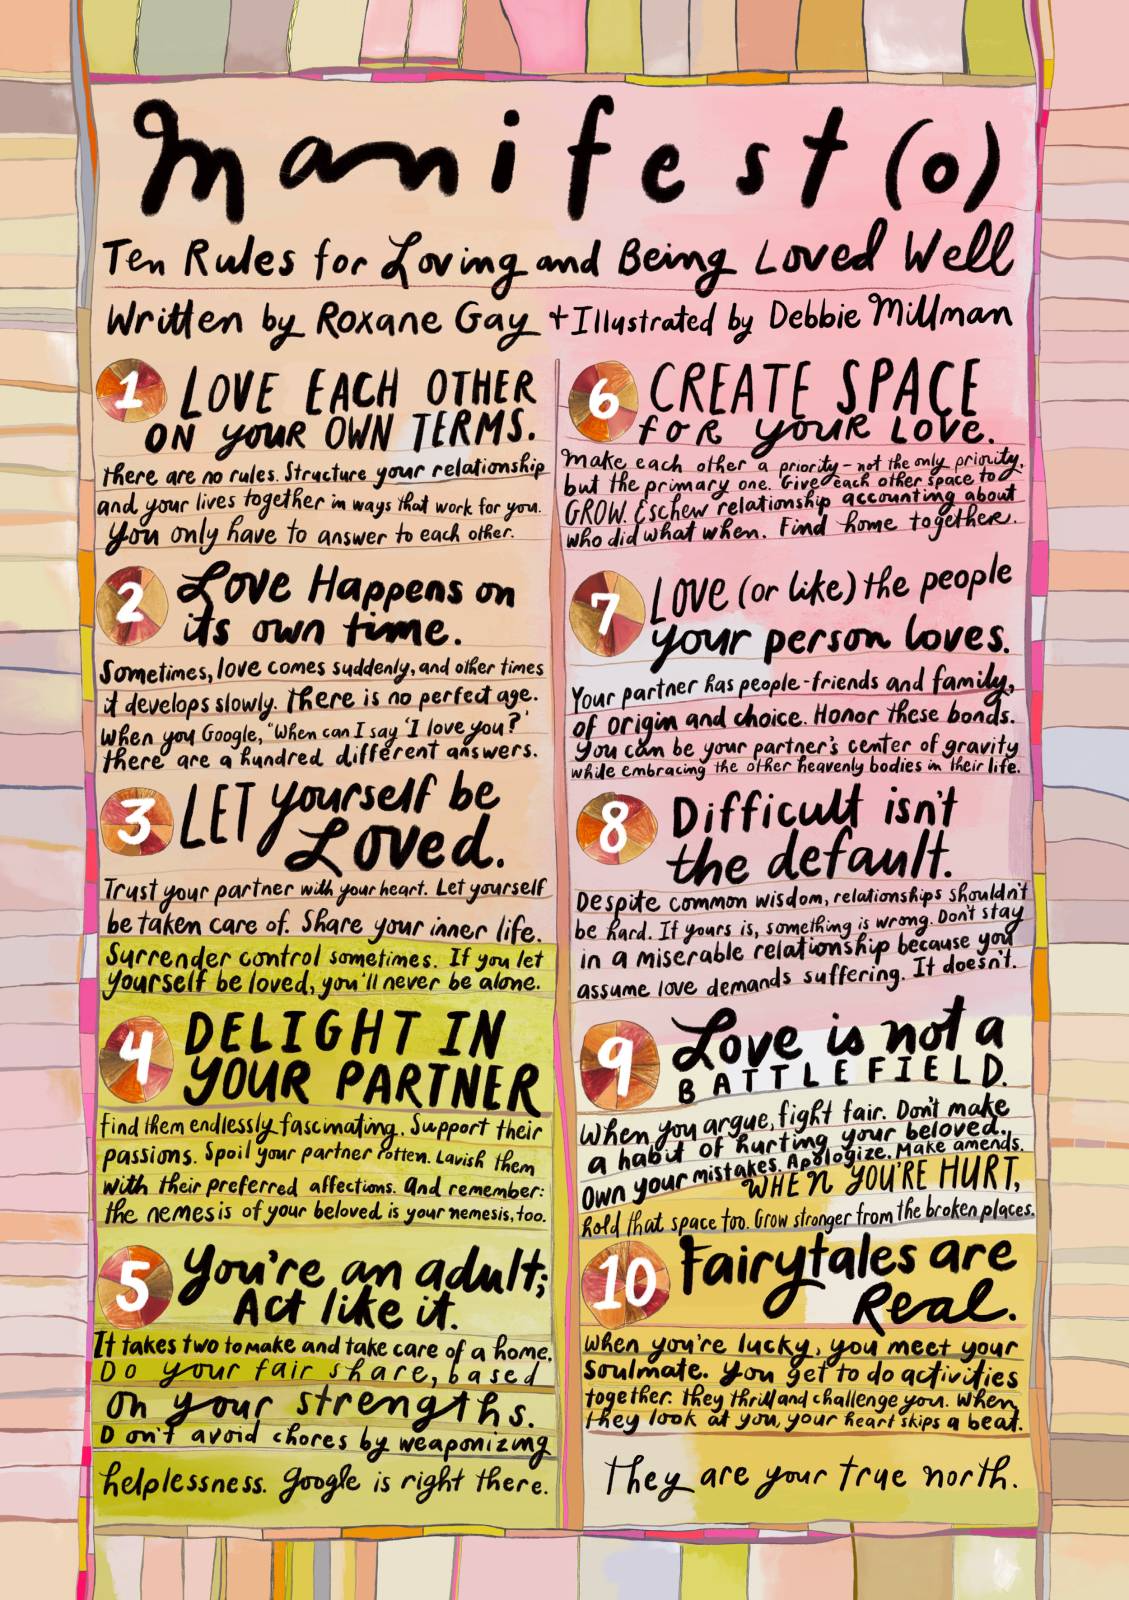 Manifest(o)
Ten Rules for Loving and Being Loved Well
Written by Roxane Gay + Illustrated by Debbie Millman
1 LOVE EACH OTHER
ON YOUR OWN TERMS.
There are no rules. Structure your relationship
and your lives together in ways that work for you.
You only have to answer to each other.
2 Love Happens on
its own time.
Sometimes, love comes suddenly, and other times
it develops slowly. There is no perfect age.
When you Google, "When can I say 'I love you?'
there are a hundred different answers.
3 LET yourself be
Loved.
Trust your partner with your heart. Let yourself
be taken care of. Share your inner life.
Surrender control sometimes. If you let
yourself be loved, you'll never be alone.
4 DELIGHT IN
YOUR PARTNER
Find them endlessly fascinating. Support their
passions. Spoil your partner rotten. Lavish them
with their preferred affections. And remember:
the nemesis of your beloved is your nemesis, too.
5 You're an adult;
Act like it.
It takes two to make and take care of a home.
Do your fair share, based
on your strengths.
Don't avoid chores by weaponizing
helplessness. Google is right there.
6 CREATE SPACE
for YOUR LOVE.
Make each other a priority - not the only priority,
but the primary one. Give each other space to
GROW. Eschew relationship accounting about
who did what when. Find home together.
7 LOVE (or like) the people
your person loves.
Your partner has people-friends and family,
of origin and choice. Honor these bonds.
You can be your partner's center of gravity
while embracing the other heavenly bodies in their life.
8 Difficult isn't
the default.
Despite common wisdom, relationships shouldn't
be hard. If yours is, something is wrong. Don't stay
in a miserable relationship because you
assume love demands suffering. It doesn't.
9 Love is not a
BATTLEFIELD.
When you argue, fight fair. Don't make
a habit of hurting your beloved.
Own your mistakes. Apologize. Make amends.
WHEN YOU'RE HURT,
hold that space too. Grow stronger from the broken places.
10 Fairytales are
Real.
When you're lucky, you meet your
soulmate. You get to do activities
together. They thrill and challenge you. When
they look at you, your heart skips a beat.
They are your true north.